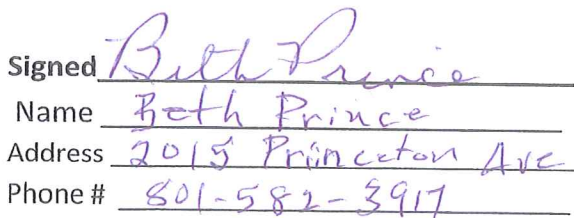 Signed Beth Prince
Name Beth Prince
Address 2015 Princeton Ave
Phone # 801-582-3917